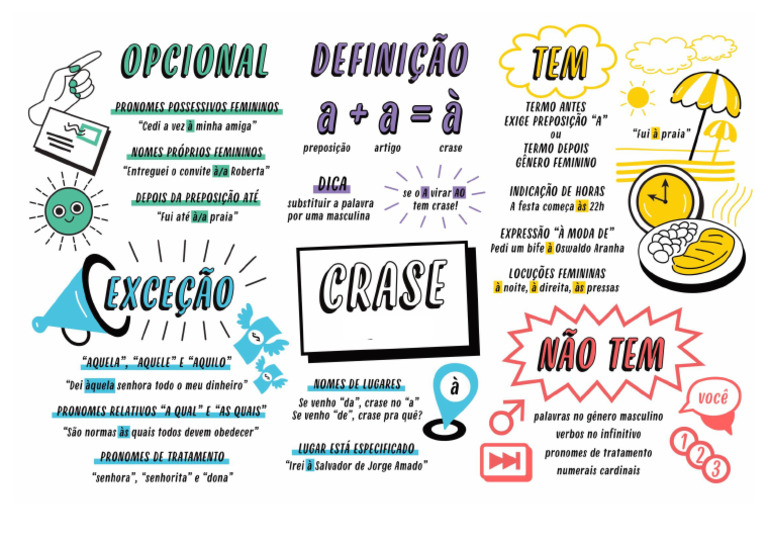 OPCIONAL
PRONOMES POSSESSIVOS FEMININOS
“Cedi a vez à minha amiga”
NOMES PRÓPRIOS FEMININOS
“Entreguei o convite à/a Roberta”
DEPOIS DA PREPOSIÇÃO ATÉ
“Fui até à/a praia”
DEFINIÇÃO
a + a = à
preposição artigo crase
DICA
substituir a palavra
por uma masculina
se o A virar AO
tem crase!
TEM
TERMO ANTES
EXIGE PREPOSIÇÃO “A”
ou
TERMO DEPOIS
GÊNERO FEMININO
“Fui à praia”
INDICAÇÃO DE HORAS
A festa começa às 22h
EXPRESSÃO “À MODA DE”
Pedi um bife à Oswaldo Aranha
LOCUÇÕES FEMININAS
à noite, à direita, às pressas
EXCEÇÃO
“AQUELA”, “AQUELE” E “AQUILO”
“Dei àquela senhora todo o meu dinheiro”
PRONOMES RELATIVOS “A QUAL” E “AS QUAIS”
“São normas às quais todos devem obedecer”
PRONOMES DE TRATAMENTO
“senhora”, “senhorita” e “dona”
$
$
CRASE
NOMES DE LUGARES
Se venho “da”, crase no “a”
Se venho “de”, crase pra quê?
à
LUGAR ESTÁ ESPECIFICADO
“Irei à Salvador de Jorge Amado”
NÃO TEM
palavras no gênero masculino
verbos no infinitivo
pronomes de tratamento
numerais cardinais
você
1
2
3